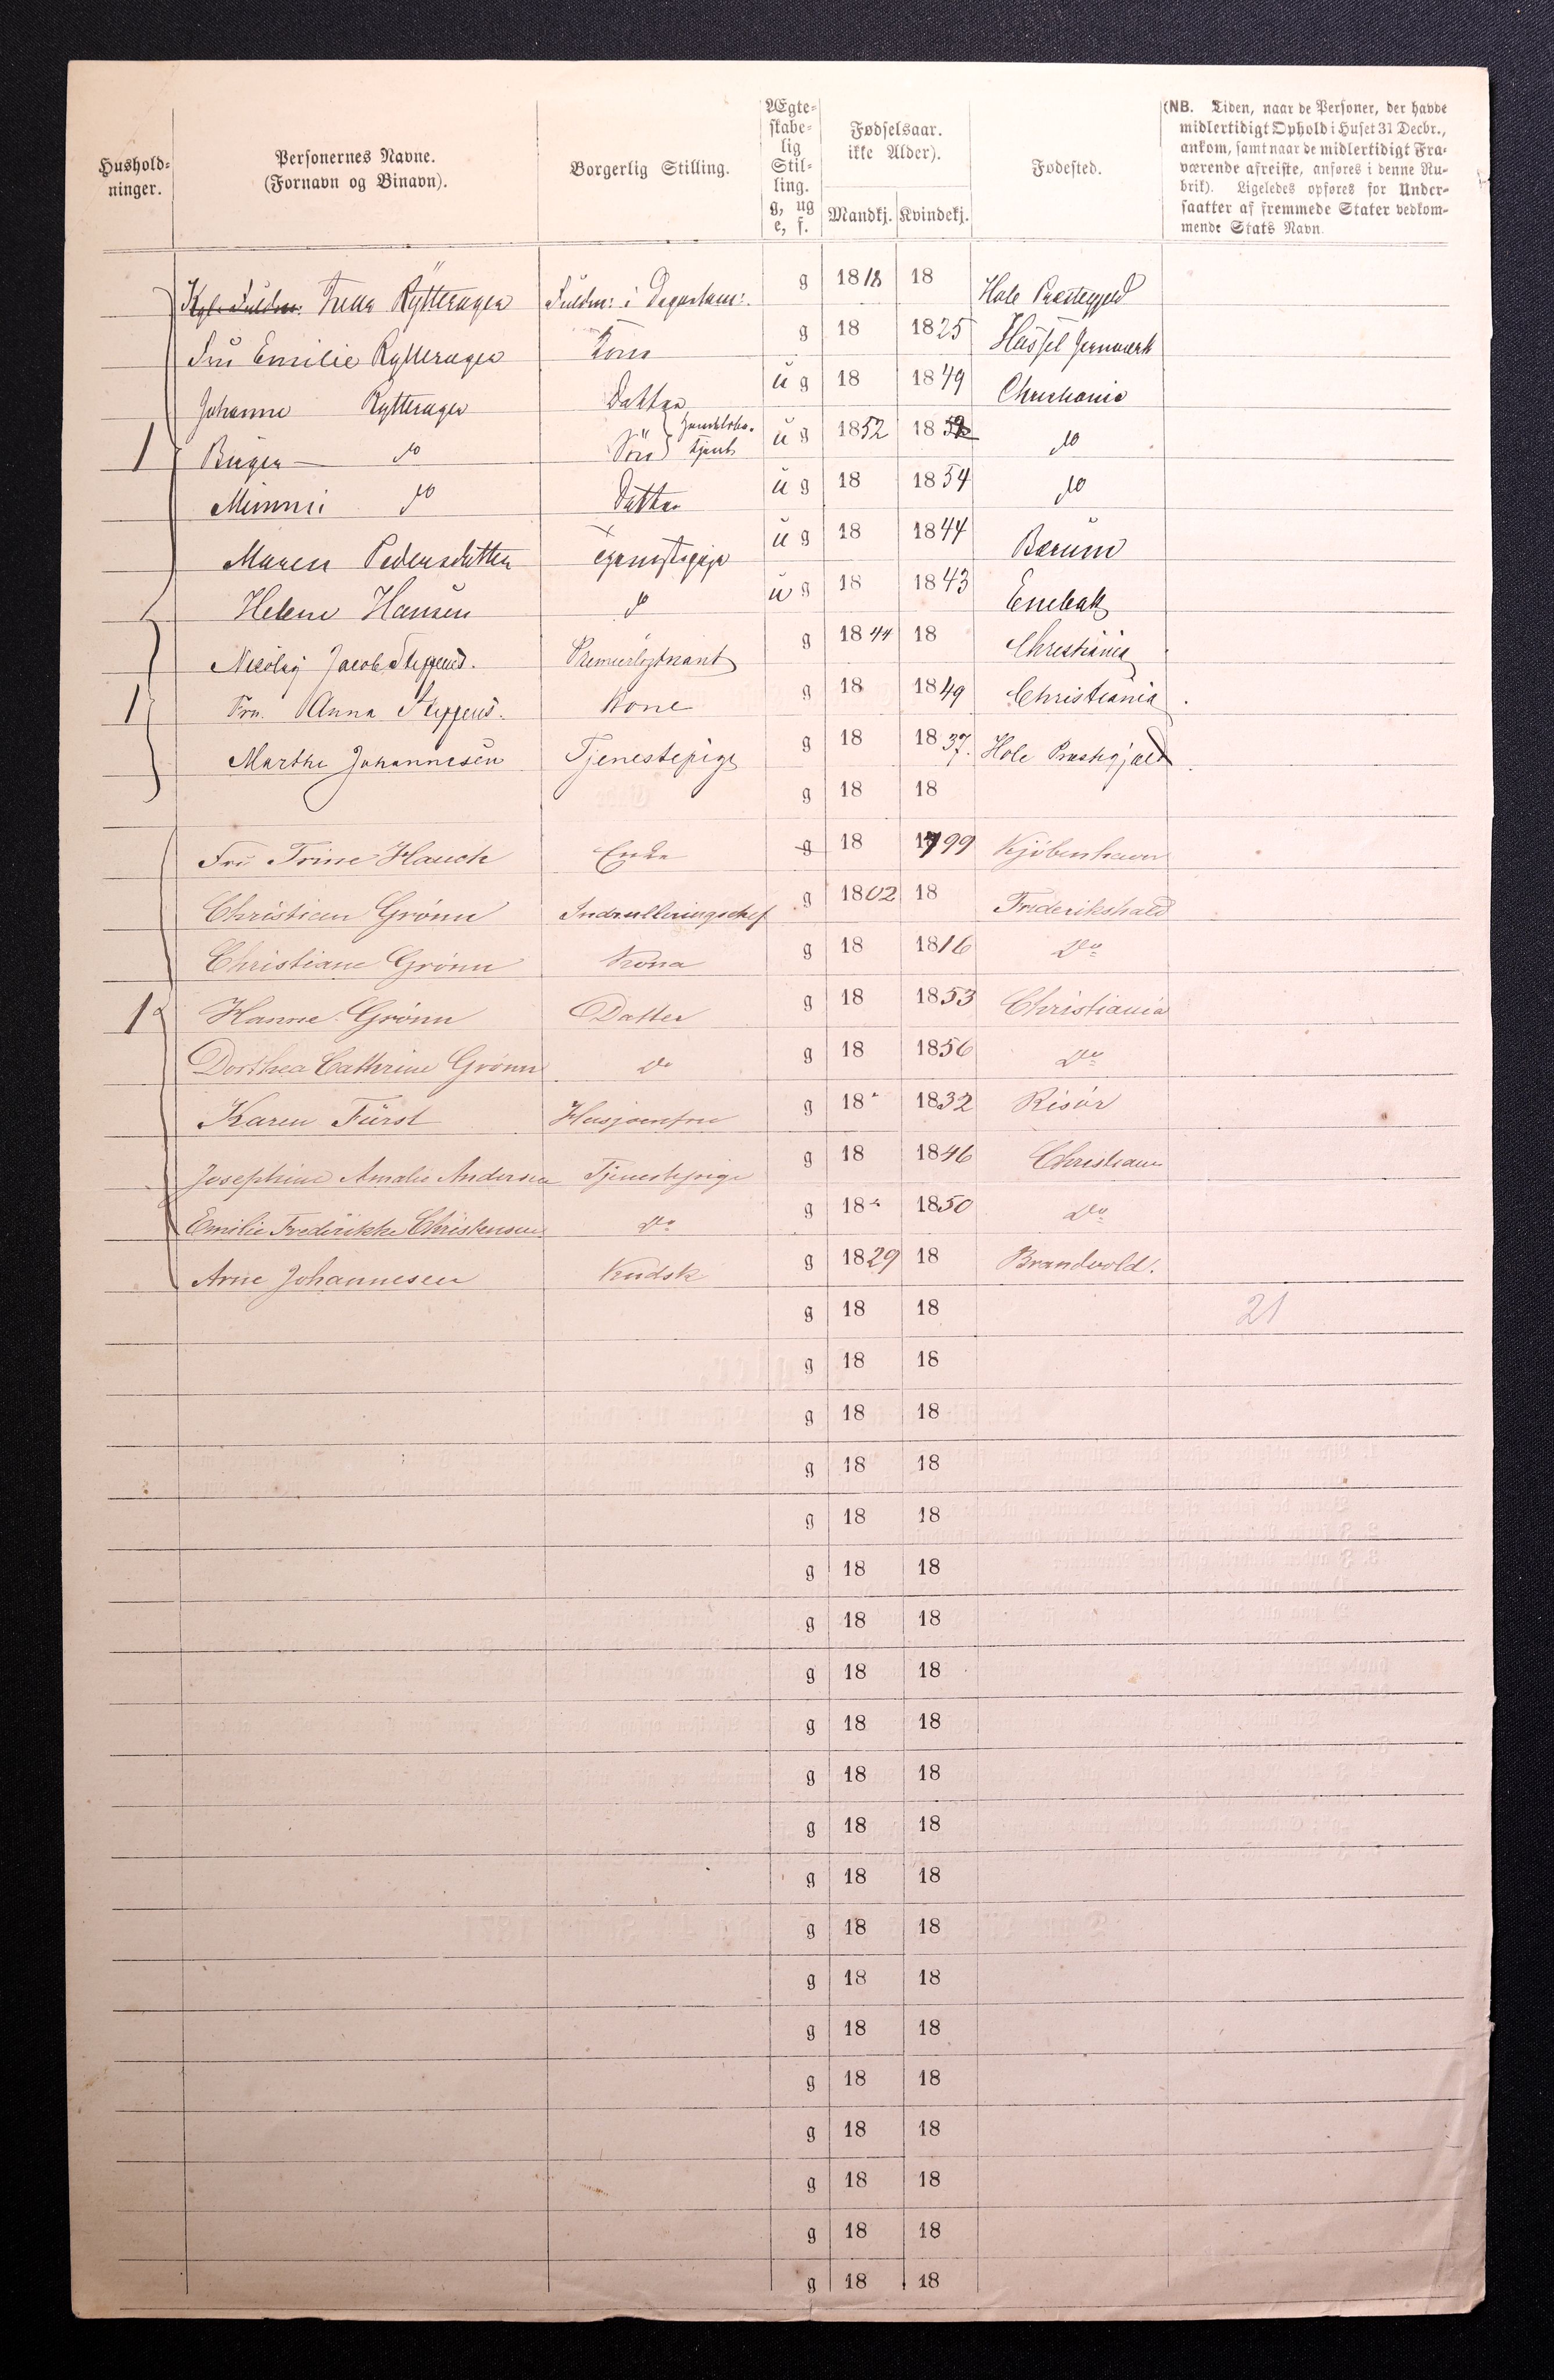 Hushold-
ninger.
Personernes Navne.
(Fornavn og Binavn).
Borgerlig Stilling.
Ægte-
skabe-
lig
Stil-
ling.
g, ug
e, f.
Fødselsaar.
ikke Alder).
Mandkj. Kvindekj.
Fødested.
(NB. Tiden, naar de Personer, der havde
midlertidigt Ophold i Huset 31 Decbr.,
ankom, samt naar de midlertidigt Fra-
værende afreiste, anføres i denne Ru-
brik). Ligeledes opføres for Under-
saatter af fremmede Stater vedkom-
mende Stats Navn.
Rytterager Fuldm: i Departem: g 1818 18 Hole Præstegjeld
Fru Emilie Rytterager Kone g 18 1825 Hassel Jernværk
Johanne Rytterager Datter u g 18 1849 Christiania
1 Birger do Søn Handelsbe. tjent u g 1852 18 do
Mimmi do Datter u g 18 1854 do
Maren Pedersdatter Tjenestepige u g 18 1844 Bærum
Helene Hansen do u g 18 1843 Enebak
Nicolay Jacob Steffens. Premierløjtnant g 1844 18 Christiania
1 Fru. Anna Steffens. Kone g 18 1849 Christiania
Marthe Johannesen Tjenestepige g 18 1837. Hole Præstegjæld
g 18 18
Fru Trine Hauch Enke g 18 1799 Kjöbenhavn
Christian Grönn Indrulleringschef g 1802 18 Frederikshald
Christiane Grönn Kona g 18 1816 Do
1 Hanne Grönn Datter g 18 1853 Christiania
Dorthea Cathrine Grönn Do g 18 1856 Do
Karen Fürst Husjomfru g 18 1832 Risör
Josephine Amalie Andersen Tjenestepige g 18 1846 Christiania
Emilie Frederikke Christensen Do g 18 1850 Do
Arne Johannesen Kudsk g 1829 18 Brandvold.
g 18 18 21
g 18 18
g 18 18
g 18 18
g 18 18
g 18 18
g 18 18
g 18 18
g 18 18
g 18 18
g 18 18
g 18 18
g 18 18
g 18 18
g 18 18
g 18 18
g 18 18
g 18 18
g 18 18
g 18 18